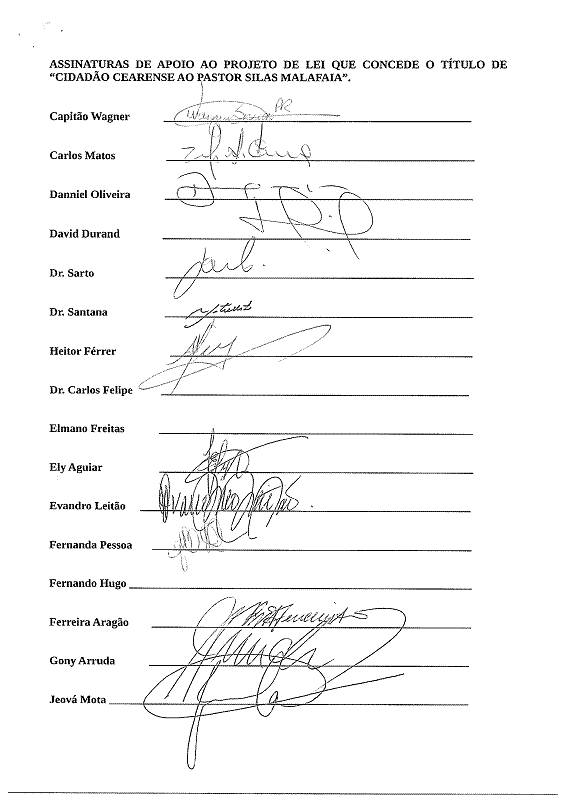 ASSINATURAS DE APOIO AO PROJETO DE LEI QUE CONCEDE O TÍTULO DE
“CIDADÃO CEARENSE AO PASTOR SILAS MALAFAIA”.
Capitão Wagner
Carlos Matos
Danniel Oliveira
David Durand
Dr. Sarto
Dr. Santana
Heitor Férrer
Dr. Carlos Felipe
Elmano Freitas
Ely Aguiar
Evandro Leitão
Fernanda Pessoa
Fernando Hugo
Ferreira Aragão
Gony Arruda
Jeová Mota